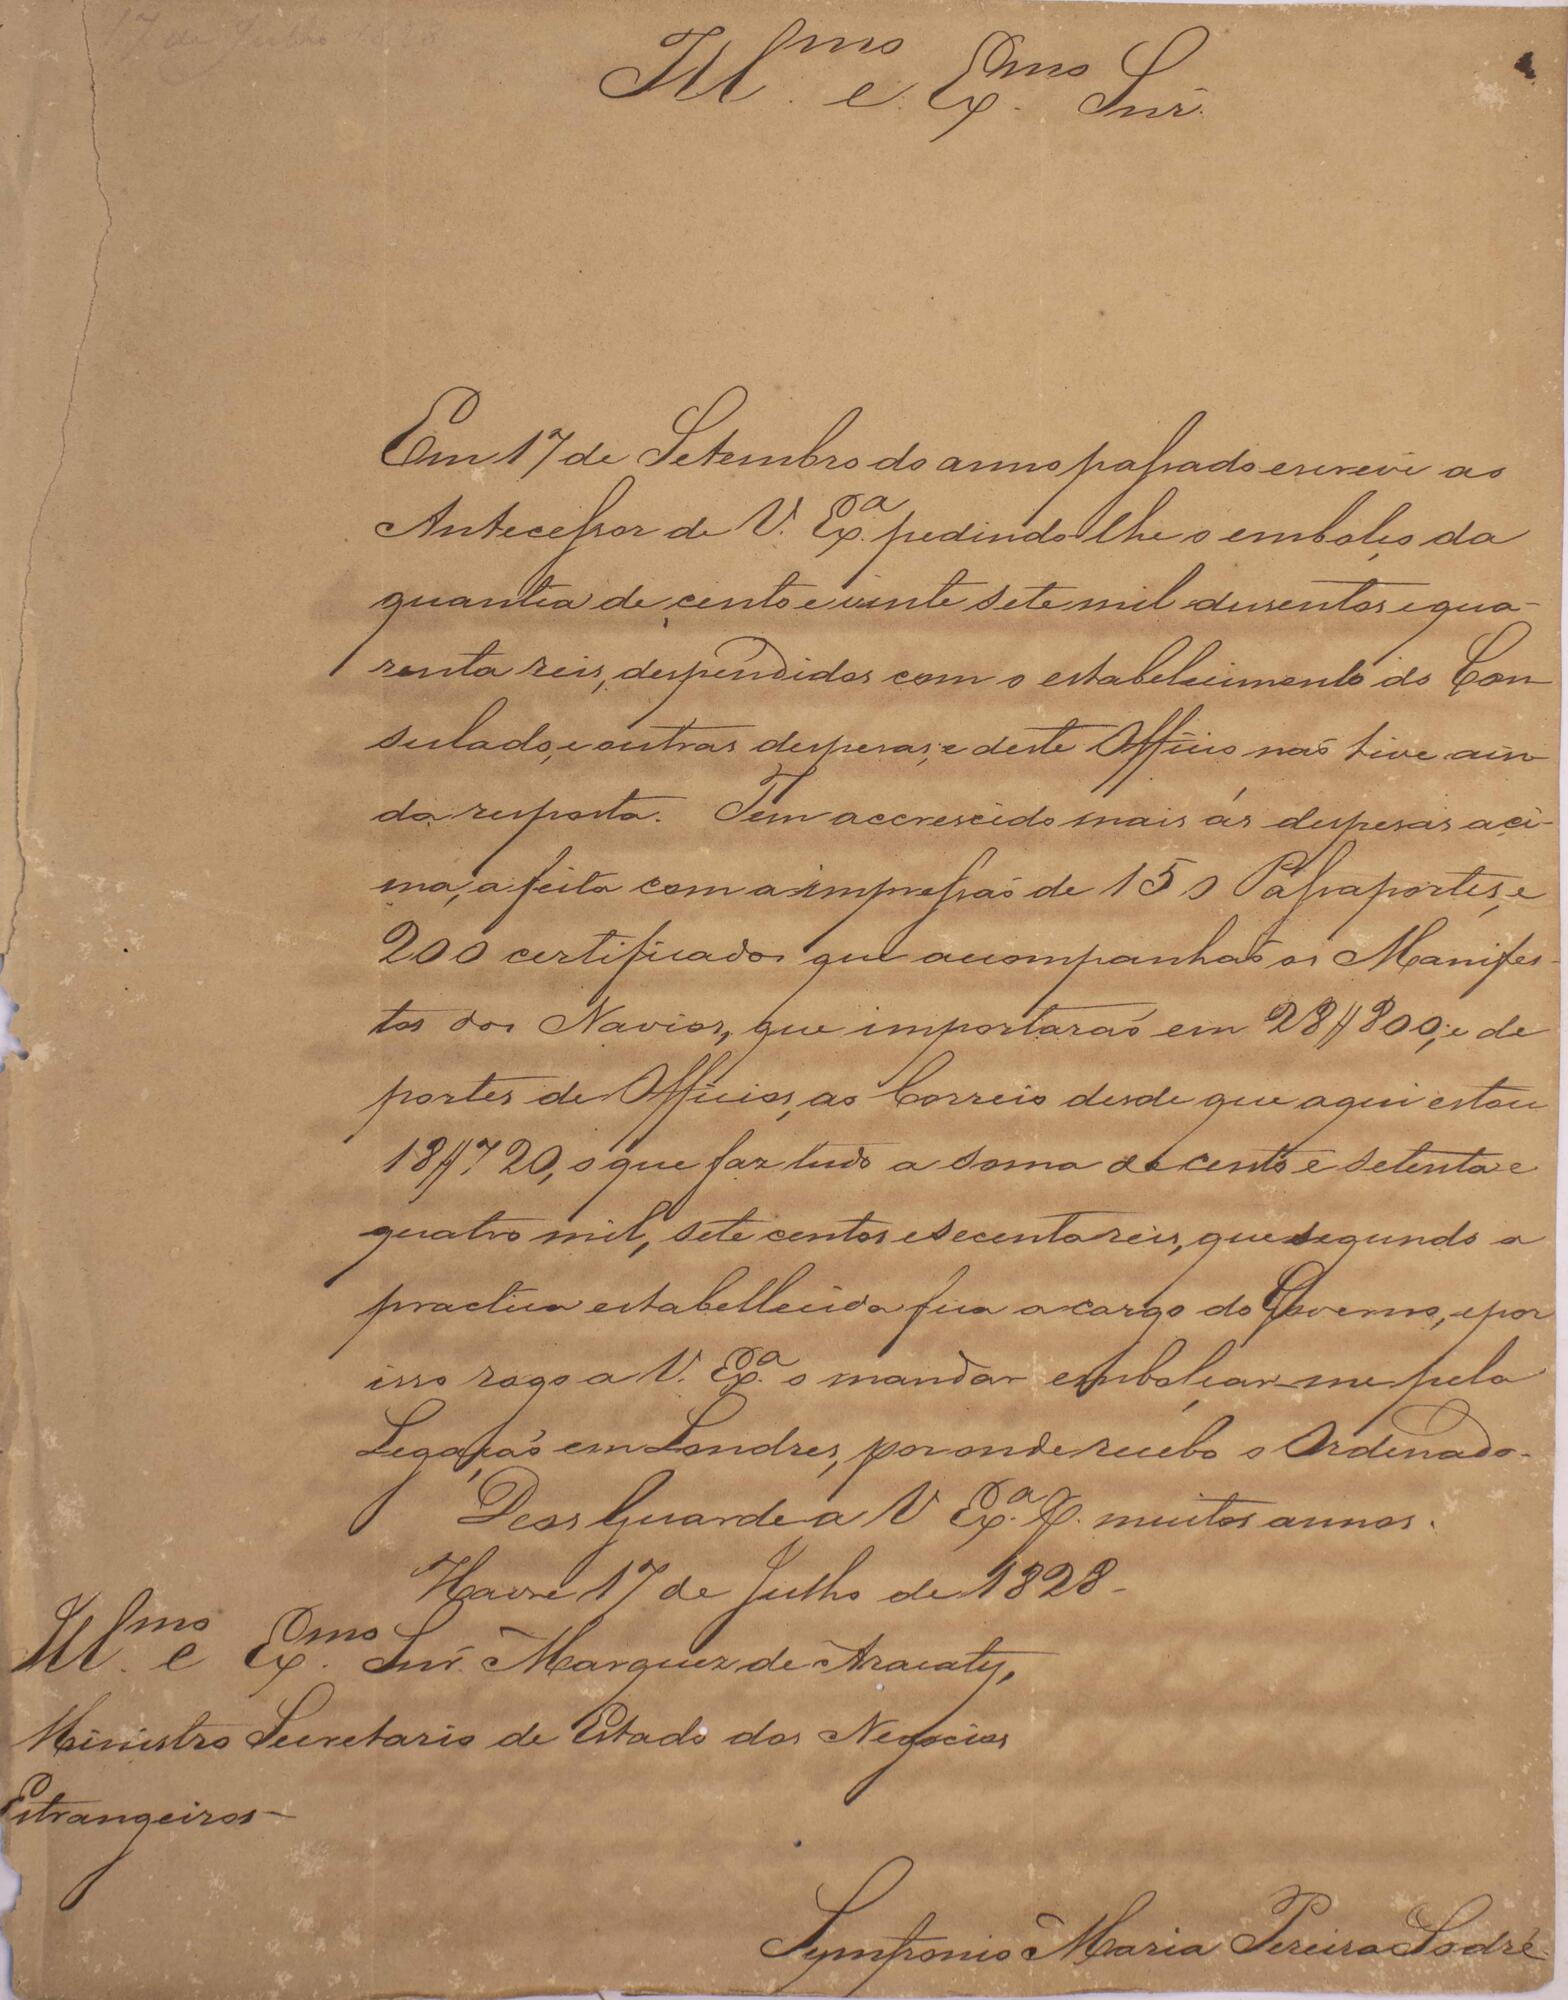 17 de Julho 1828
Ill.mo e Ex.mo Snr.
Em 17 de Setembro do anno passado escrevi ao
Antecessor de V. Ex.a pedindo-lhe o embolço da
quantia de cento e vinte sete mil dusentos e qua-
renta reis, despendidos com o estabelecimento do Con
sulado, e outras despesas, e deste Officio naõ tive ain
da resposta. Tem accrescido mais ás despesas aci-
ma, a feita com a impressaõ de 150 Passaportes, e
200 certificados que acompanhaõ os Manifes-
tos dos Navios, que importaraõ em 28$800, e de
portes de Officios, ao Correio desde que aqui estou
18$720, o que faz tudo a soma de cento e setenta e
quatro mil, sete centos e secenta reis, que segundo a
practica estabellecida fica a cargo do Governo, e por
isso rogo a V. Ex.a o mandar embolçar-me pela
Legaçaõ em Londres, por onde recebo o Ordenado.
Deos Guarde a V Ex.a G. muitos annos.
Havre 17 de Julho de 1828-
Ill.mo e Ex.mo Snr. Marquez de Aracaty,
Ministro Secretario de Estado dos Negocios
Estrangeiros-
Symfronio Maria Pereira Sodré